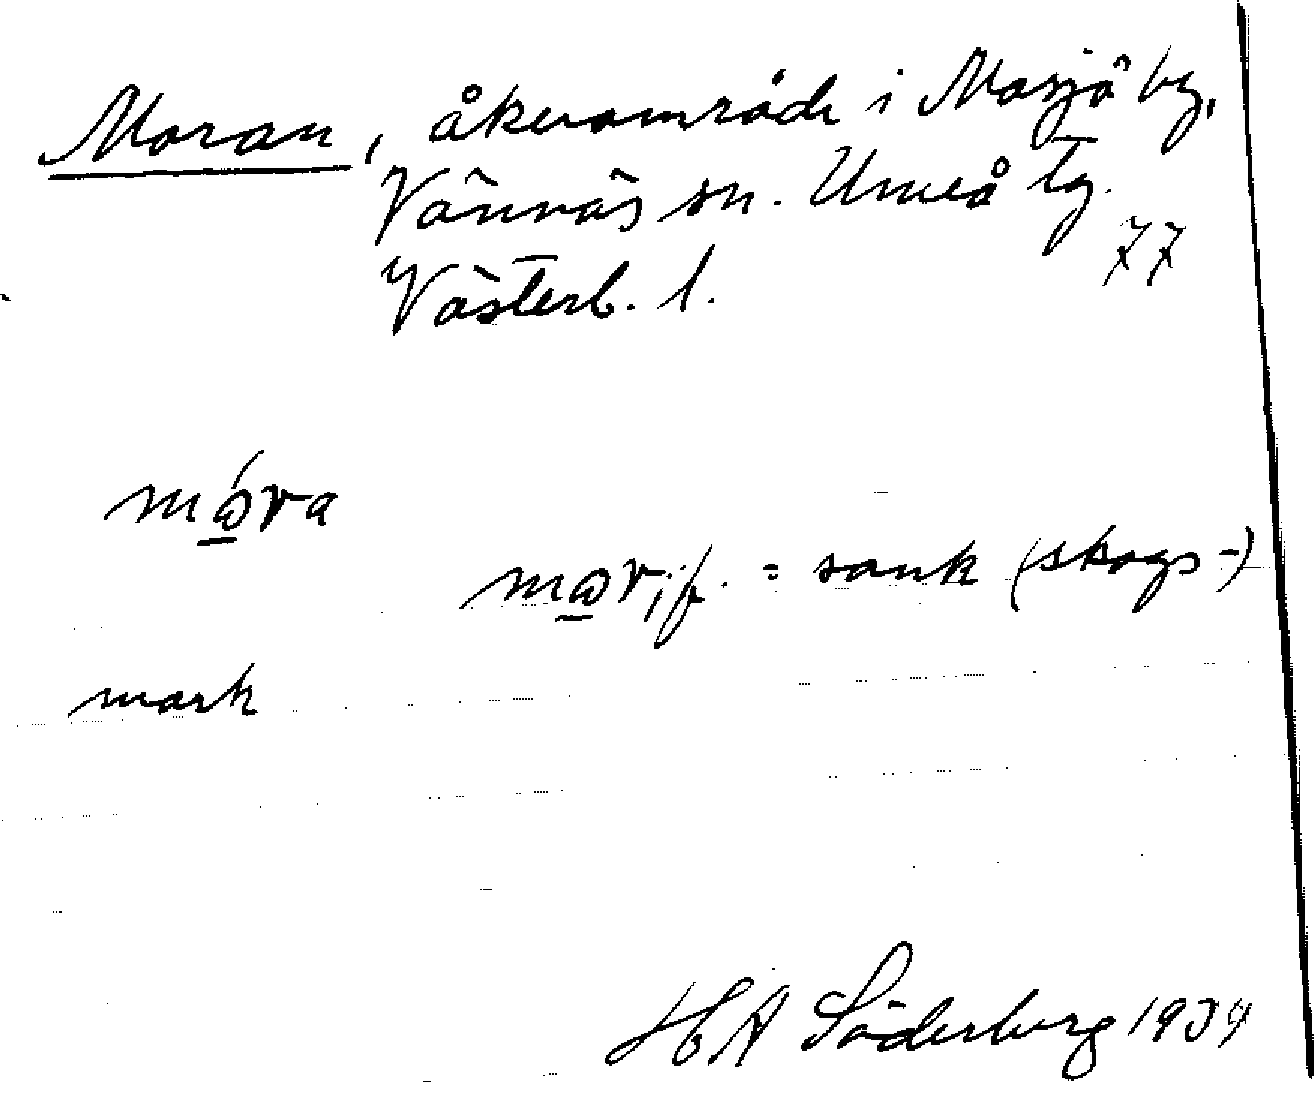 Moran, åkerområde i Mosjö by,
Vännäs sn. Umeå tg.
77
Västerb. l.
mꞷ́ra
mꞷr, f. = sank (skogs-)
mark
HA Söderberg 1934